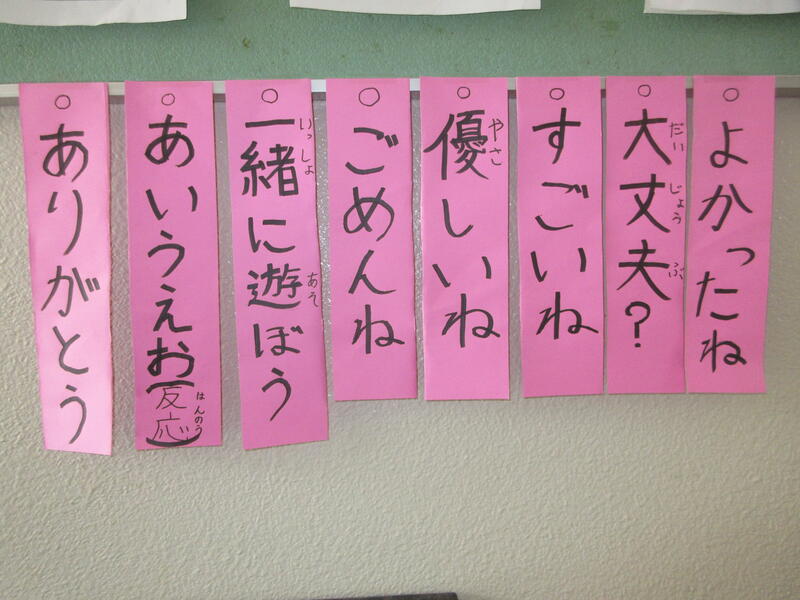 ○よかったね
○大丈夫?
だいじょうぶ
○すごいね
○優しいね
やさ
○ごめんね
○一緒に遊ぼう
いっしょ あそ
○あいうえお(反応)
はんのう
○ありがとう